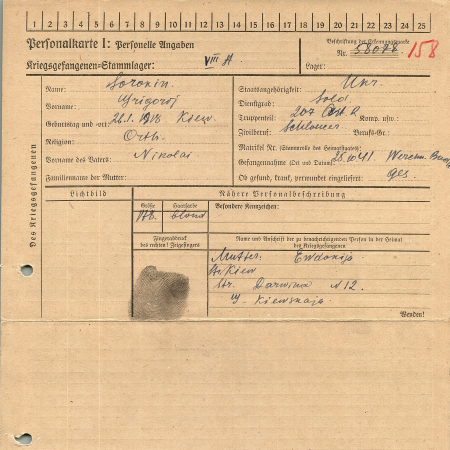 1 2 3 4 5 6 7 8 9 10 11 12 13 14 15 16 17 18 19 20 21 22 23 24 25
Personalkarte I: Personelle Angaben
Beschriftung der Erkennungsmarke
Nr. 58078 158
Kriegsgefangenen-Stammlager: VIII A
Lager:
Des Kriegsgefangenen
Name: Sorokin
Vorname: Grigorij
Geburtstag und -ort: 21.1.1918 Kiew
Religion: Orth.
Vorname des Vaters: Nikolai
Familienname der Mutter:
Staatsangehörigkeit: Ukr.
Dienstgrad: Sold.
Truppenteil: 207 Komp. usw.:
Zivilberuf: Schlosser Berufs-Gr.:
Matrikel Nr. (Stammrolle des Heimatstaates):
Gefangennahme (Ort und Datum):
Ob gesund, krank, verwundet eingeliefert: ges.
Lichtbild
Nähere Personalbeschreibung
Größe
Haarfarbe blond
Besondere Kennzeichen:
Fingerabdruck
des rechten! Zeigefingers
Name und Anschrift der zu benachrichtigenden Person in der Heimat
des Kriegsgefangenen
Mutter: Ewdokija
Kiew
Str. Darwina N 12
Kiewskaja
Wenden!